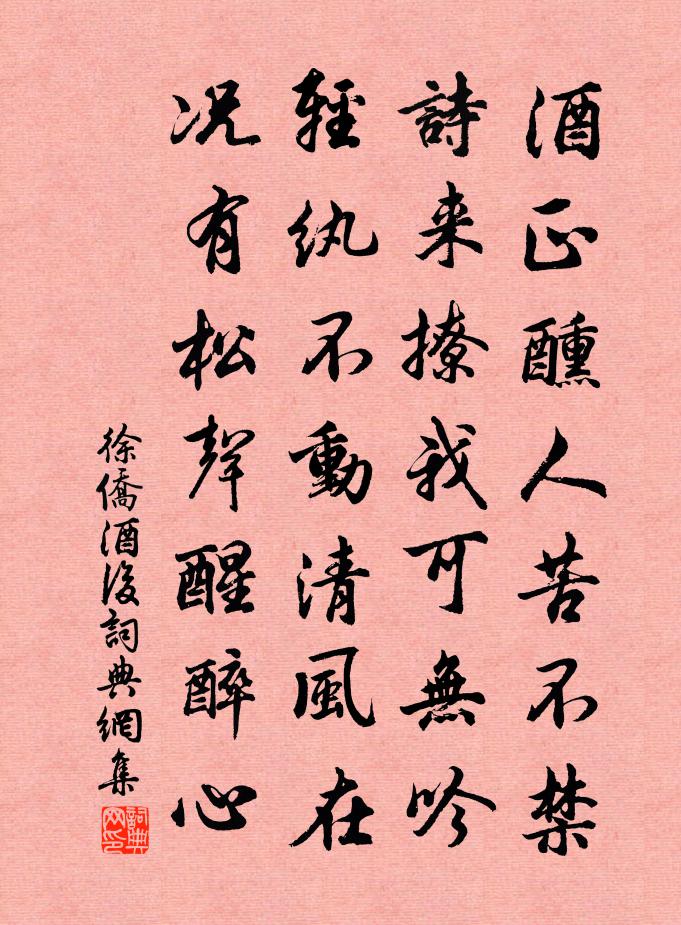 酒正醺人苦不禁
詩来撩我可無吟
輕纨不動清風在
况有松聲醒醉心
徐僑酒後詞典網集
詞典网印